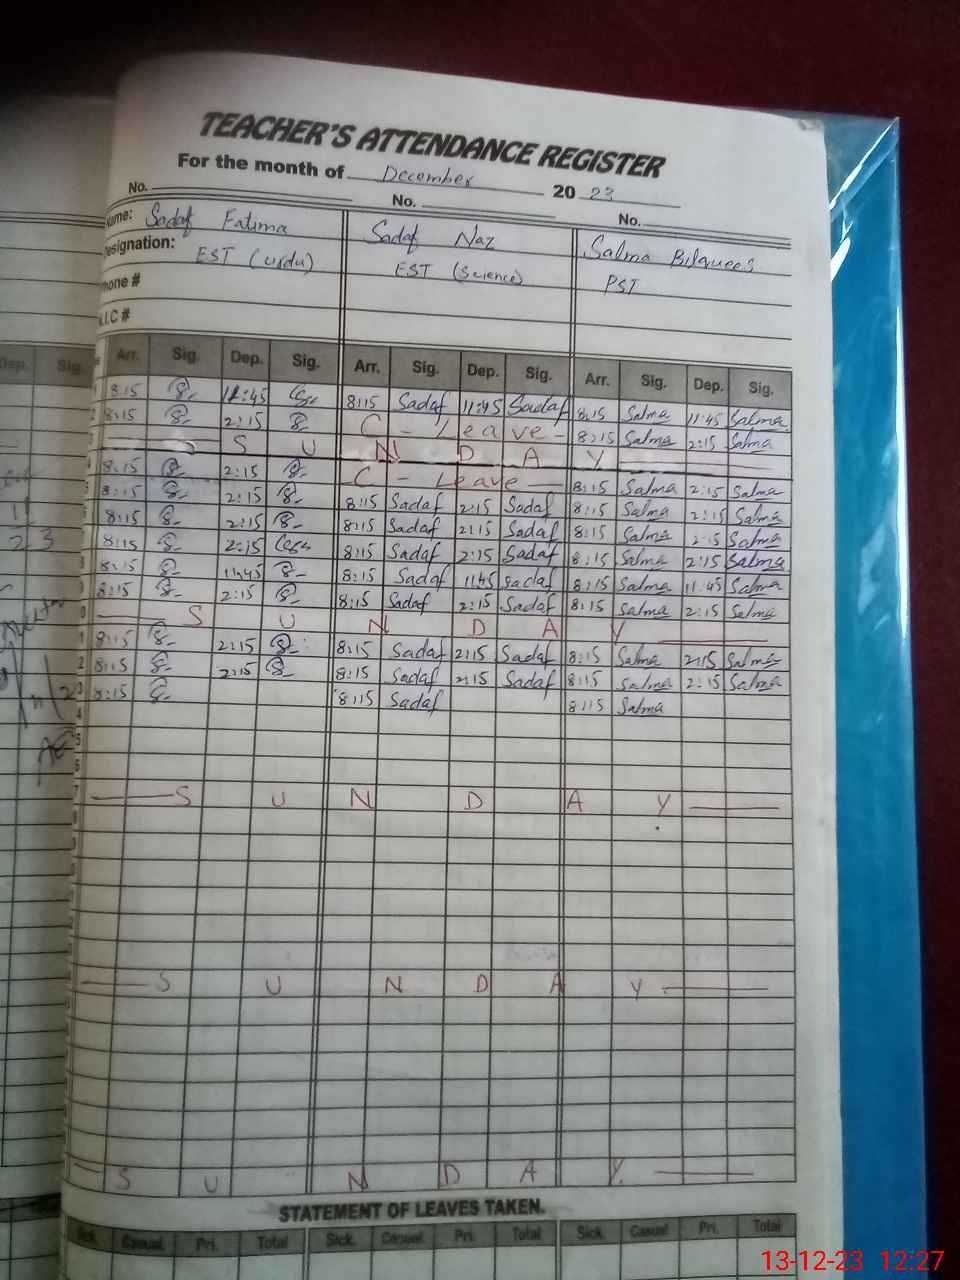 TEACHER'S ATTENDANCE REGISTER
For the month of December 20 23
No. No. No.
Name: Sadaf Fatima Sadaf Naz Salma Bilquees
Designation: EST (Urdu) EST (Science) PST
Phone #
N.I.C #
Dep. Sig. Arr. Sig. Dep. Sig. Arr. Sig. Dep. Sig. Arr. Sig. Dep. Sig.
1 8:15 11:45 8:15 Sadaf 11:45 Sadaf 8:15 Salma 11:45 Salma
2 8:15 2:15 C - Leave - 8:15 Salma 2:15 Salma
3 S U N D A Y
4 8:15 2:15 C - Leave 8:15 Salma 2:15 Salma
5 8:15 2:15 8:15 Sadaf 2:15 Sadaf 8:15 Salma 2:15 Salma
6 8:15 2:15 8:15 Sadaf 2:15 Sadaf 8:15 Salma 2:15 Salma
7 8:15 2:15 8:15 Sadaf 2:15 Sadaf 8:15 Salma 2:15 Salma
8 8:15 11:45 8:15 Sadaf 11:45 Sadaf 8:15 Salma 11:45 Salma
9 8:15 2:15 8:15 Sadaf 2:15 Sadaf 8:15 Salma 2:15 Salma
0 S U N D A Y
1 8:15 2:15 8:15 Sadaf 2:15 Sadaf 8:15 Salma 2:15 Salma
2 8:15 2:15 8:15 Sadaf 2:15 Sadaf 8:15 Salma 2:15 Salma
3 8:15 8:15 Sadaf 8:15 Salma
4
5
6
7 S U N D A Y
S U N D A Y
S U N D A Y
STATEMENT OF LEAVES TAKEN.
Sick. Casual. Pri. Total Sick. Casual. Pri. Total Sick. Casual. Pri. Total
13-12-23 12:27